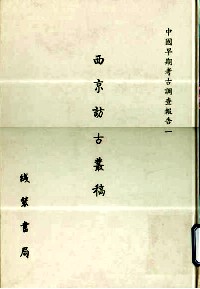 中國早期考古調查報告一
西京訪古叢稿
綫裝書局